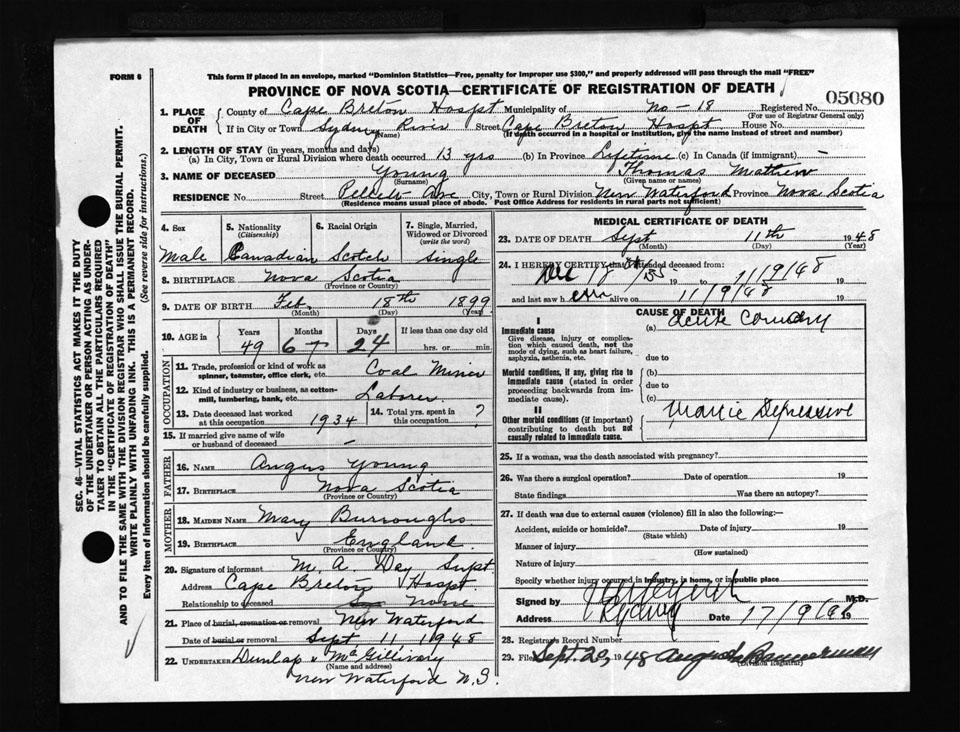 FORM 6
This form if placed in an envelope, marked "Dominion Statistics—Free, penalty for improper use $300," and properly addressed will pass through the mail "FREE"
PROVINCE OF NOVA SCOTIA—CERTIFICATE OF REGISTRATION OF DEATH
05080
1. PLACE OF DEATH
County of Cape Breton Hospt Municipality of No-18 Registered No.
(For use of Registrar General only)
If in City or Town Sydney River Street Cape Breton Hospt. House No.
(Name) (If death occurred in a hospital or institution, give the name instead of street and number)
2. LENGTH OF STAY (in years, months and days)
(a) In City, Town or Rural Division where death occurred 13 yrs (b) In Province Lifetime (c) In Canada (if immigrant) —
3. NAME OF DECEASED Young Thomas Mathew
(Surname) (Given name or names)
RESIDENCE No. Street Ave City, Town or Rural Division New Waterford Province Nova Scotia
(Residence means usual place of abode. Post Office Address for residents in rural parts not sufficient)
4. Sex
Male
5. Nationality
(Citizenship)
Canadian
6. Racial Origin
Scotch
7. Single, Married, Widowed or Divorced
(write the word)
Single
8. BIRTHPLACE Nova Scotia
(Province or Country)
9. DATE OF BIRTH Feb. 18th 1899
(Month) (Day) (Year)
10. AGE in
Years Months Days If less than one day old
49 6 24 hrs. or min.
OCCUPATION
11. Trade, profession or kind of work as spinner, teamster, office clerk, etc. Coal Miner
12. Kind of industry or business, as cotton-mill, lumbering, bank, etc. Laborer
13. Date deceased last worked at this occupation 1934
14. Total yrs. spent in this occupation ?
15. If married give name of wife or husband of deceased —
FATHER
16. NAME Angus Young
17. BIRTHPLACE Nova Scotia
(Province or Country)
MOTHER
18. MAIDEN NAME Mary Burroughs
19. BIRTHPLACE England
(Province or Country)
20. Signature of informant M. A. Day Supt
Address Cape Breton Hospt.
Relationship to deceased None
21. Place of burial, cremation or removal New Waterford
Date of burial or removal Sept 11 1948
22. UNDERTAKER Dunlap & McGillivary
(Name and address)
New Waterford N.S.
MEDICAL CERTIFICATE OF DEATH
23. DATE OF DEATH Sept 11th 1948
(Month) (Day) (Year)
24. I HEREBY CERTIFY that I attended deceased from:
19 to 11/9/48 19
and last saw h alive on 11/9/48 19
CAUSE OF DEATH
I
Immediate cause
Give disease, injury or complication which caused death, not the mode of dying, such as heart failure, asphyxia, asthenia, etc.
(a) Acute Coronary
due to
Morbid conditions, if any, giving rise to immediate cause (stated in order proceeding backwards from immediate cause).
(b)
due to
(c)
II
Other morbid conditions (if important) contributing to death but not causally related to immediate cause.
Manic Depressive
25. If a woman, was the death associated with pregnancy?
26. Was there a surgical operation? Date of operation 19
State findings Was there an autopsy?
27. If death was due to external causes (violence) fill in also the following:—
Accident, suicide or homicide? Date of injury 19
(State which)
Manner of injury
(How sustained)
Nature of injury
Specify whether injury occurred in industry, in home, or in public place
Signed by M.D.
Address Sydney Date 17/9/48 19
28. Registrar's Record Number
29. Filed Sept. 20, 1948 Angus Bannerman
(Division Registrar)
SEC. 46—VITAL STATISTICS ACT MAKES IT THE DUTY
OF THE UNDERTAKER OR PERSON ACTING AS UNDERTAKER
TO OBTAIN ALL THE PARTICULARS REQUIRED
IN THE "CERTIFICATE OF REGISTRATION OF DEATH"
AND TO FILE THE SAME WITH THE DIVISION REGISTRAR WHO SHALL ISSUE THE BURIAL PERMIT.
WRITE PLAINLY WITH UNFADING INK. THIS IS A PERMANENT RECORD.
Every item of information should be carefully supplied. (See reverse side for instructions.)